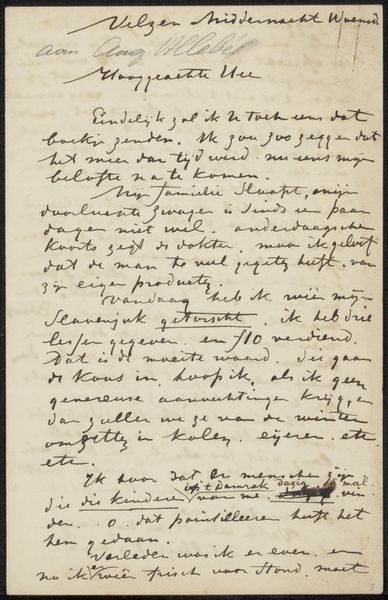 Velzen Middernacht Woensd.
aan Aug. Allebé
Hooggeachte Heer
Eindelijk zal ik U toch eens dat
boekje zenden. Ik zou zoo zeggen dat
het meer dan tijd werd nu eens mijn
belofte na te komen.
Mijn familie slaapt, mijn
doorluchte zwager is sinds een paar
dagen niet wel. anderdaagsche
koorts zegt de dokter, maar ik geloof
dat de man te veel gegeten heeft van
zijn eigen producten.
Vandaag heb ik weêr mijn
Slavenjuk getorscht. ik heb drie
lessen gegeven en f10 verdiend.
Dat is de moeite waard. die gaan
de kous in, hoop ik, als ik geen
genereuse aanvechtingen krijg, en
dan zullen we ze van de winter
omzetten in kolen, eijeren. etc
etc.
Ik hoor dat er menschen zijn
die die kinderen van me op 't Damrak dazig mal vin
den. o dat pointilleeren heeft het
hem gedaan.
Verleden was ik er even en
nu ik er weêr frisch voor stond, moet